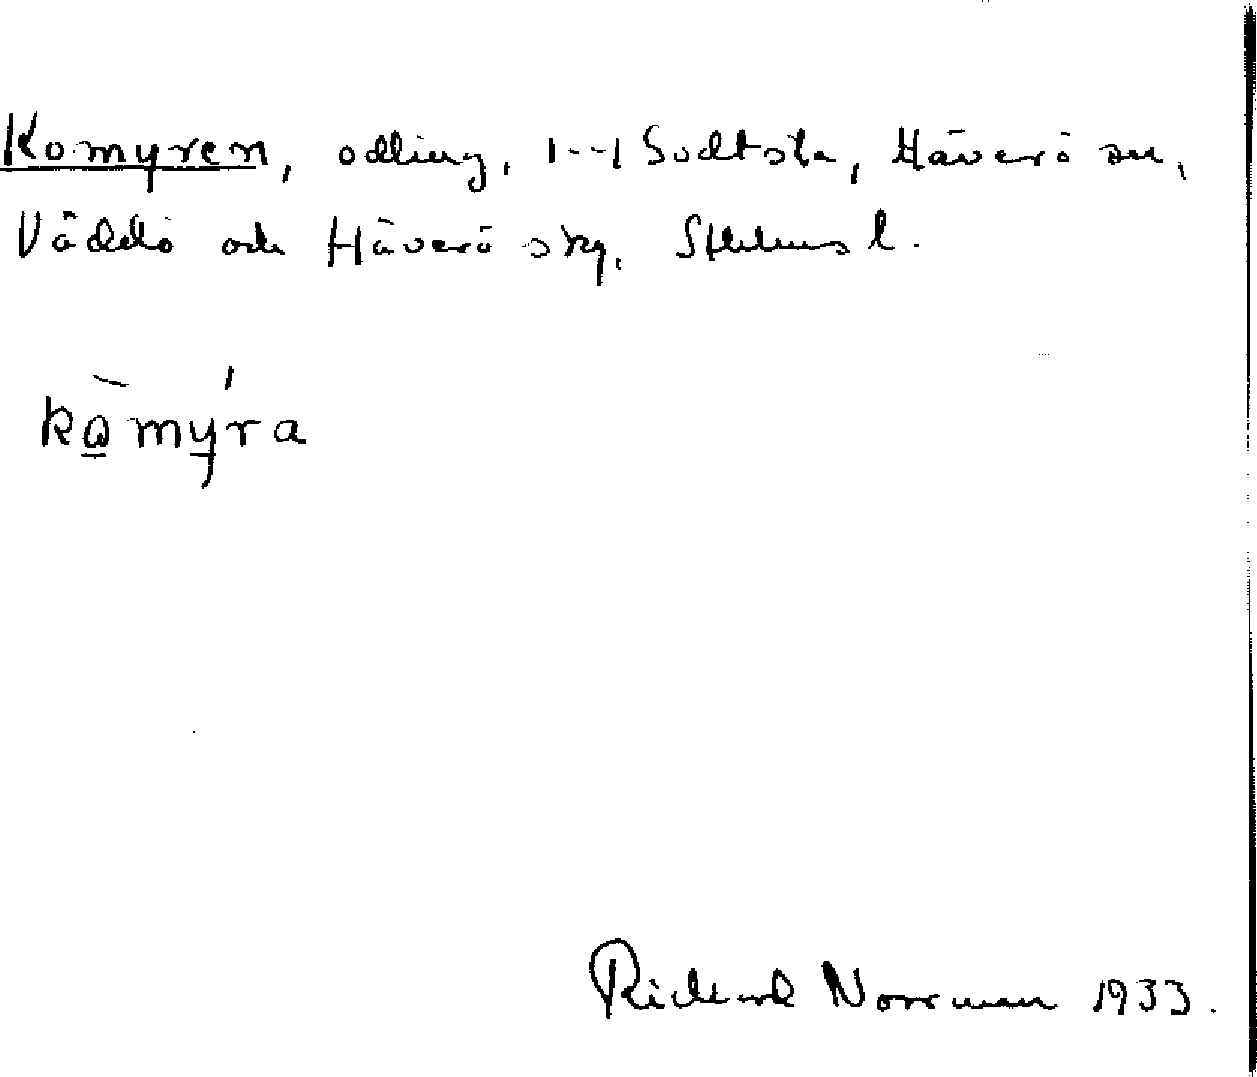 Komyren, odling, Häverö sn,
Väddö och Häverö skg, Sthlms l.
kọ̀mýra
Richard Norrman 1933.